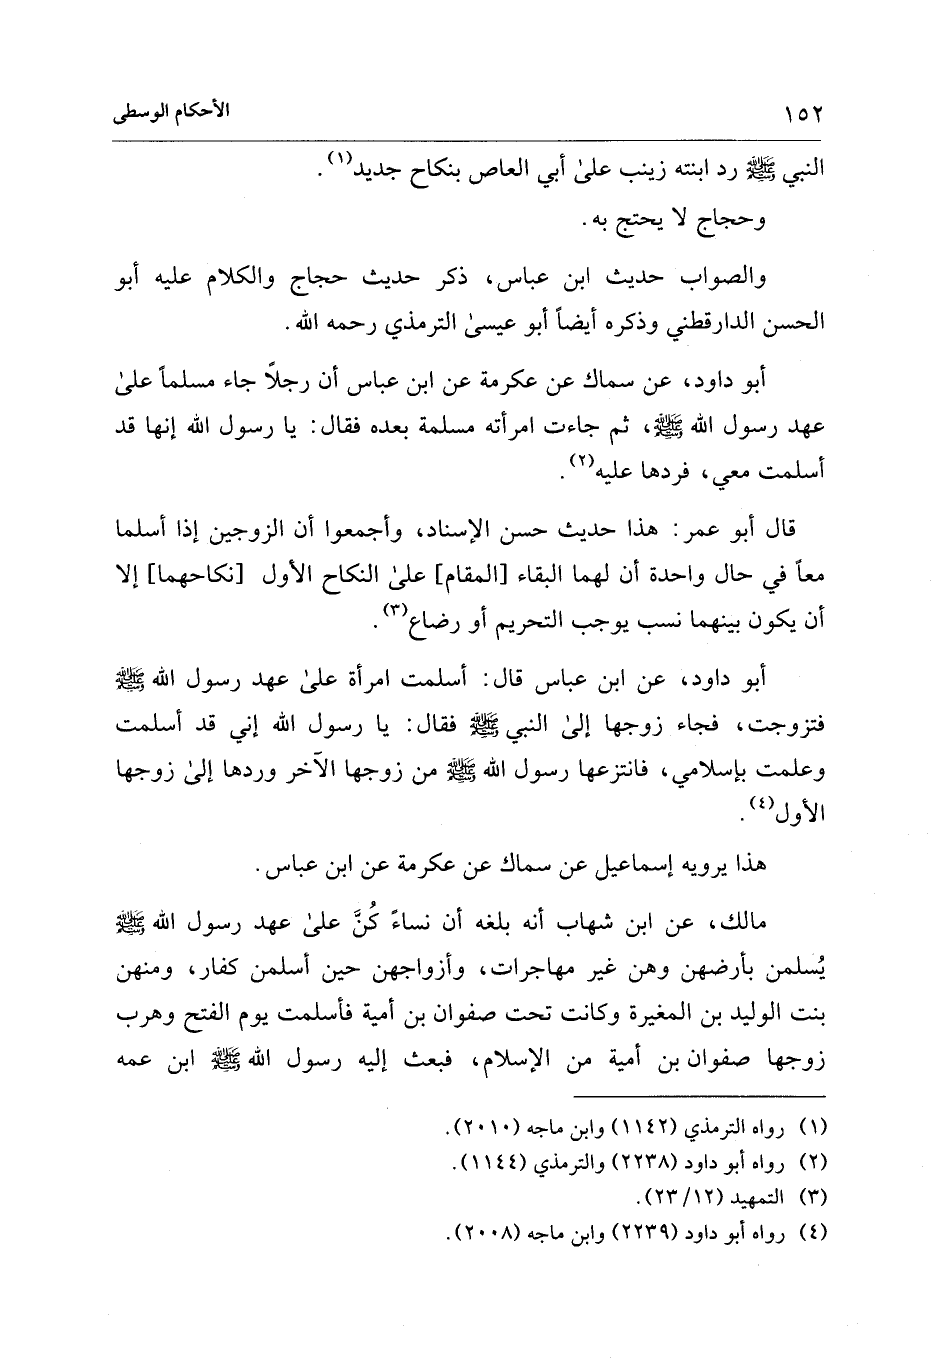 ١٥٢ الأحكام الوسطى
النبي ﷺ رد ابنته زينب علىٰ أبي العاص بنكاح جديد(١).
وحجاج لا يحتج به.
والصواب حديث ابن عباس، ذكر حديث حجاج والكلام عليه أبو
الحسن الدارقطني وذكره أيضاً أبو عيسىٰ الترمذي رحمه الله.
أبو داود، عن سماك عن عكرمة عن ابن عباس أن رجلاً جاء مسلماً علىٰ
عهد رسول الله ﷺ، ثم جاءت امرأته مسلمة بعده فقال: يا رسول الله إنها قد
أسلمت معي، فردها عليه(٢).
قال أبو عمر: هذا حديث حسن الإسناد، وأجمعوا أن الزوجين إذا أسلما
معاً في حال واحدة أن لهما البقاء [المقام] علىٰ النكاح الأول [نكاحهما] إلا
أن يكون بينهما نسب يوجب التحريم أو رضاع(٣).
أبو داود، عن ابن عباس قال: أسلمت امرأة علىٰ عهد رسول الله ﷺ
فتزوجت، فجاء زوجها إلىٰ النبي ﷺ فقال: يا رسول الله إني قد أسلمت
وعلمت بإسلامي، فانتزعها رسول الله ﷺ من زوجها الآخر وردها إلىٰ زوجها
الأول(٤).
هذا يرويه إسماعيل عن سماك عن عكرمة عن ابن عباس.
مالك، عن ابن شهاب أنه بلغه أن نساءً كُنَّ علىٰ عهد رسول الله ﷺ
يُسلمن بأرضهن وهن غير مهاجرات، وأزواجهن حين أسلمن كفار، ومنهن
بنت الوليد بن المغيرة وكانت تحت صفوان بن أمية فأسلمت يوم الفتح وهرب
زوجها صفوان بن أمية من الإسلام، فبعث إليه رسول الله ﷺ ابن عمه
(١) رواه الترمذي (١١٤٢) وابن ماجه (٢٠١٠).
(٢) رواه أبو داود (٢٢٣٨) والترمذي (١١٤٤).
(٣) التمهيد (١٢/ ٢٣).
(٤) رواه أبو داود (٢٢٣٩) وابن ماجه (٢٠٠٨).